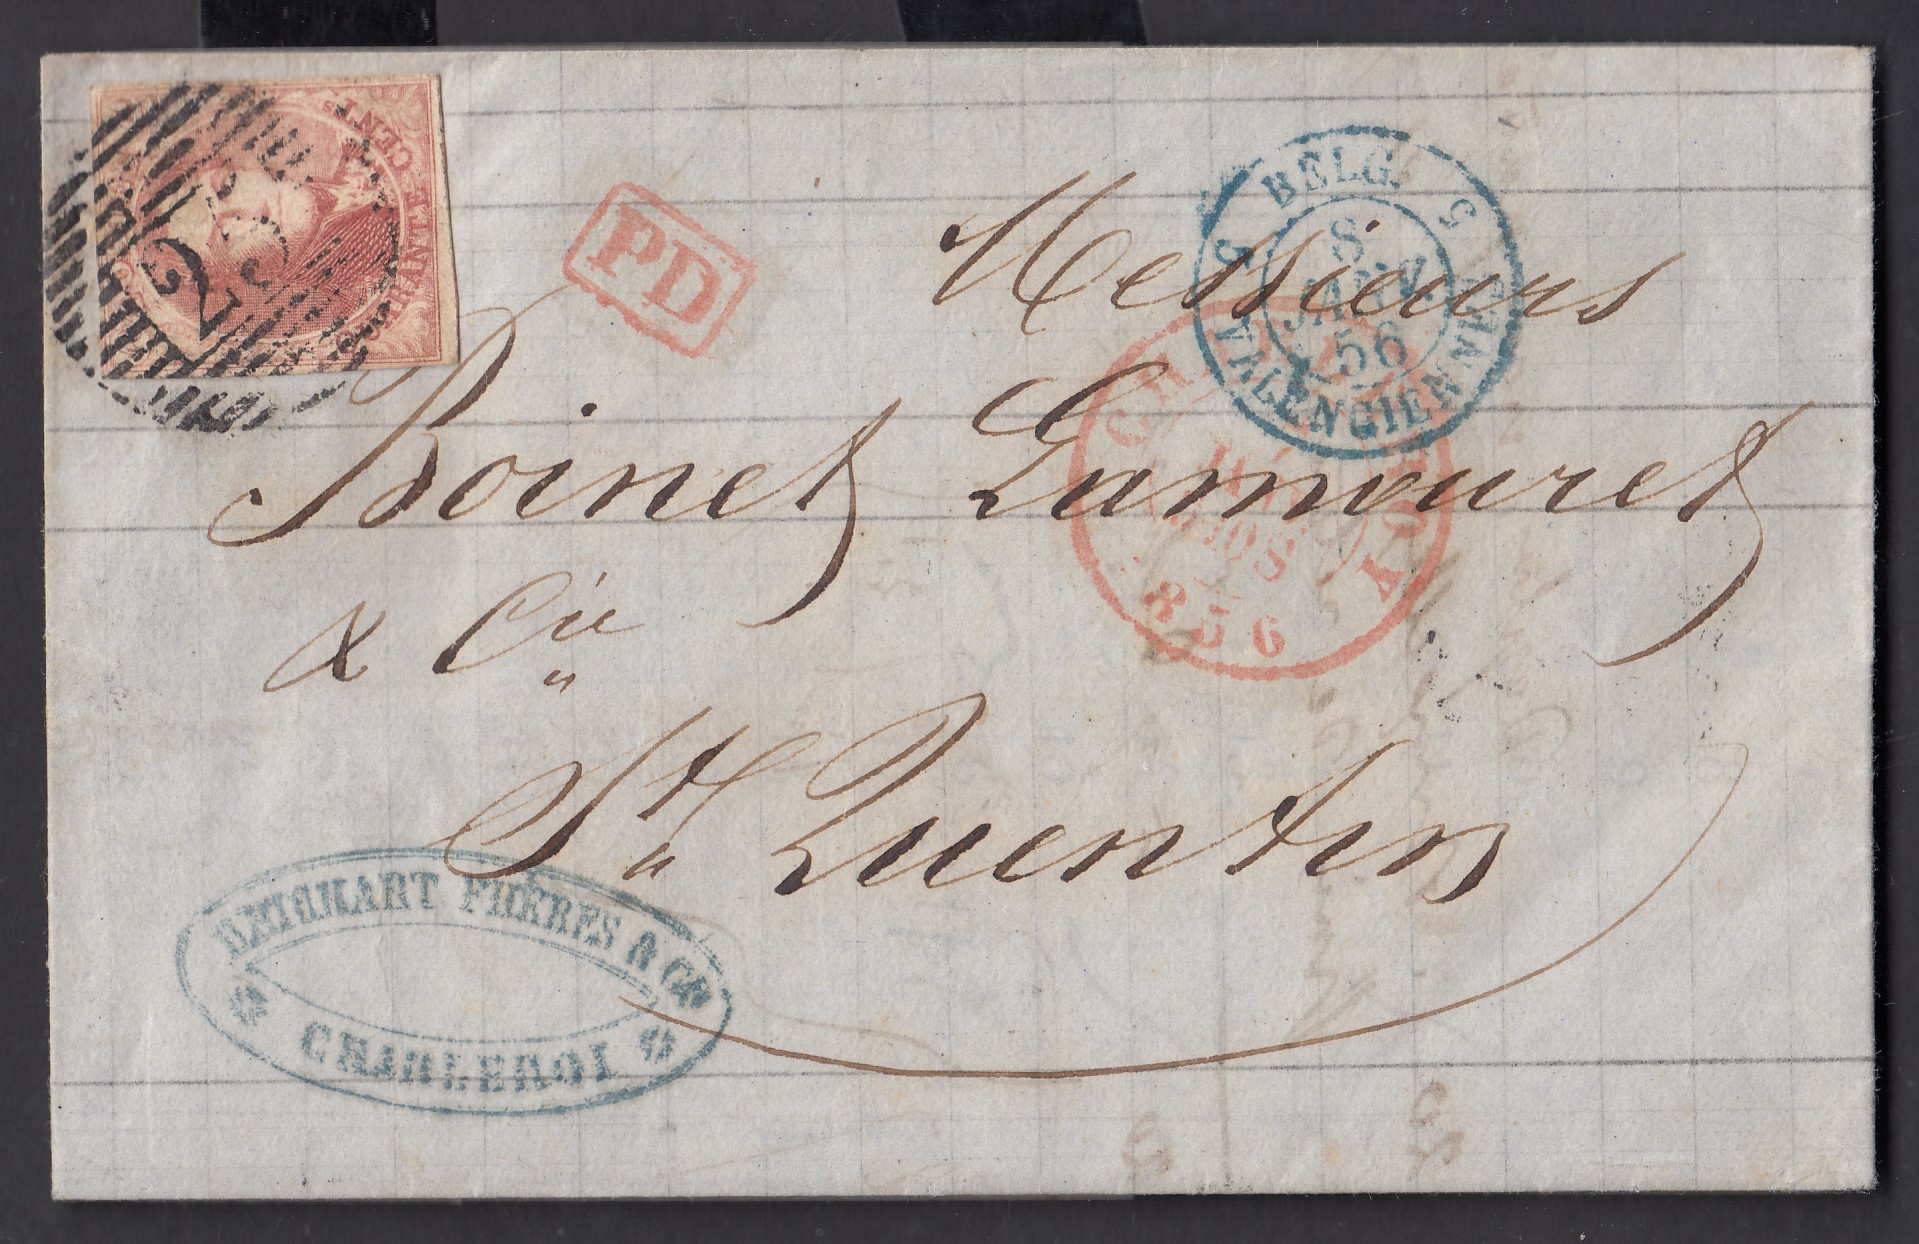 QUARANTE CENTS
2
PD
BELG. 5
8
JANV.
56
VALENCIENNES
G
CHARLEROY
1856
Messieurs
Boinet Lamouret
& Cie
St Quentin
REIGHART FRÈRES & CIE
CHARLEROI